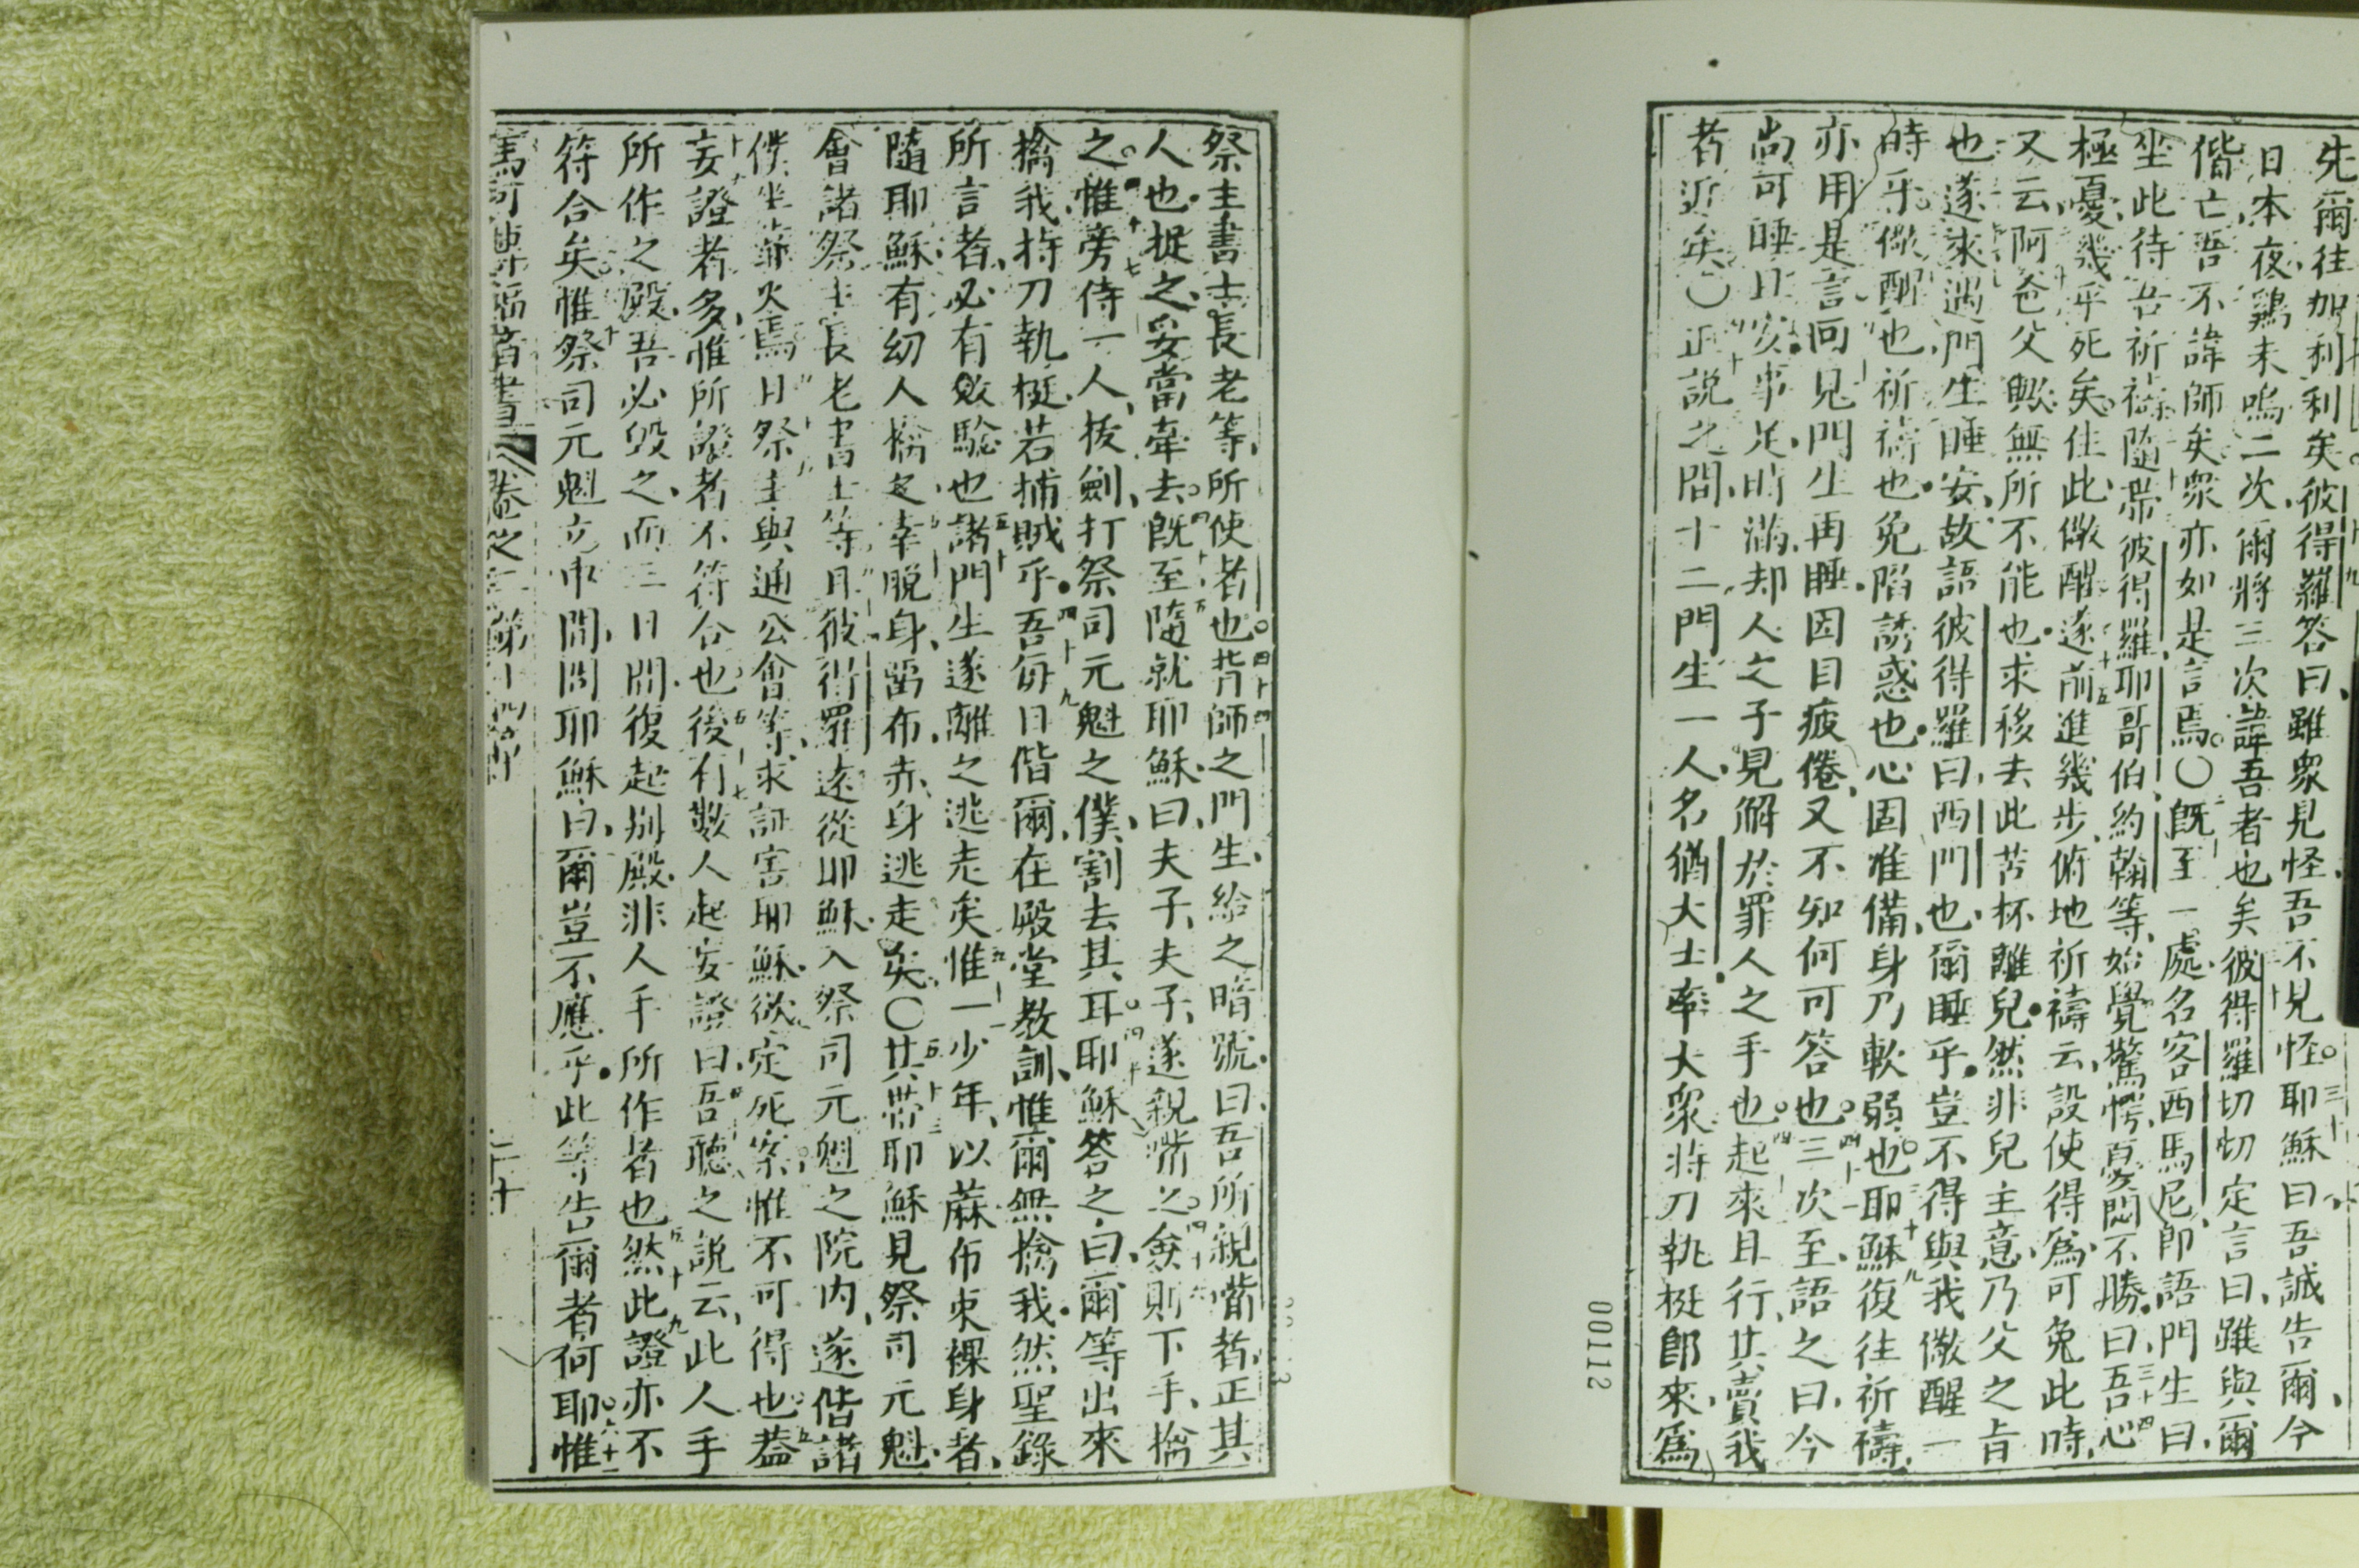 先爾往加利利矣彼得羅答曰雖衆見怪吾不見怪耶穌曰吾誠告爾今
日本夜鷄未鳴二次爾將三次諱吾者也矣彼得羅切切定言曰雖與爾
偕亡吾不諱師矣衆亦如是言焉〇既至一處名客西馬尼即語門生曰
坐此待吾祈禱隨帶彼得羅耶哥伯約翰等始覺驚愕憂悶不勝曰吾心
極憂幾乎死矣住此儆醒遂前進幾步俯地祈禱云設使得爲可免此時
又云阿爸父歟無所不能也求移去此苦杯離兒然非兒主意乃父之旨
也遂來遇門生睡安故語彼得羅曰西門也爾睡乎豈不得與我儆醒一
時乎儆醒也祈禱也免陷誘惑也心固准備身乃軟弱也耶穌復往祈禱
亦用是言回見門生再睡因目疲倦又不知何可答也三次至語之曰今
尚可睡且安事足時滿却人之子見解於罪人之手也起來且行其賣我
者近矣〇正説之間十二門生一人名猶大士率大衆將刀執梃郎來爲
00112
祭主書士長老等所使者也背師之門生給之暗號曰吾所親嘴者正其
人也捉之妥當牽去既至隨就耶穌曰夫子夫子遂親嘴之衆則下手擒
之惟旁侍一人拔劍打祭司元魁之僕割去其耳耶穌答之曰爾等出來
擒我持刀執梃若捕賊乎吾每日偕爾在殿堂教訓惟爾無擒我然聖錄
所言者必有效驗也諸門生遂離之逃走矣惟一少年以蔴布束裸身者
隨耶穌有幼人擒之幸脱身留布赤身逃走矣〇其帶耶穌見祭司元魁
會諸祭主長老書士等且彼得羅遠從耶穌入祭司元魁之院内遂偕諸
僕坐靠火焉且祭主與通公會等求証害耶穌欲定死案惟不可得也葢
妄證者多惟所證者不符合也後有數人起妄證曰吾聽之説云此人手
所作之殿吾必毁之而三日間復起别殿非人手所作者也然此證亦不
符合矣惟祭司元魁立中間問耶穌曰爾豈不應乎此等告爾者何耶惟
馬可傳福音書 卷之二 第十四節 二十